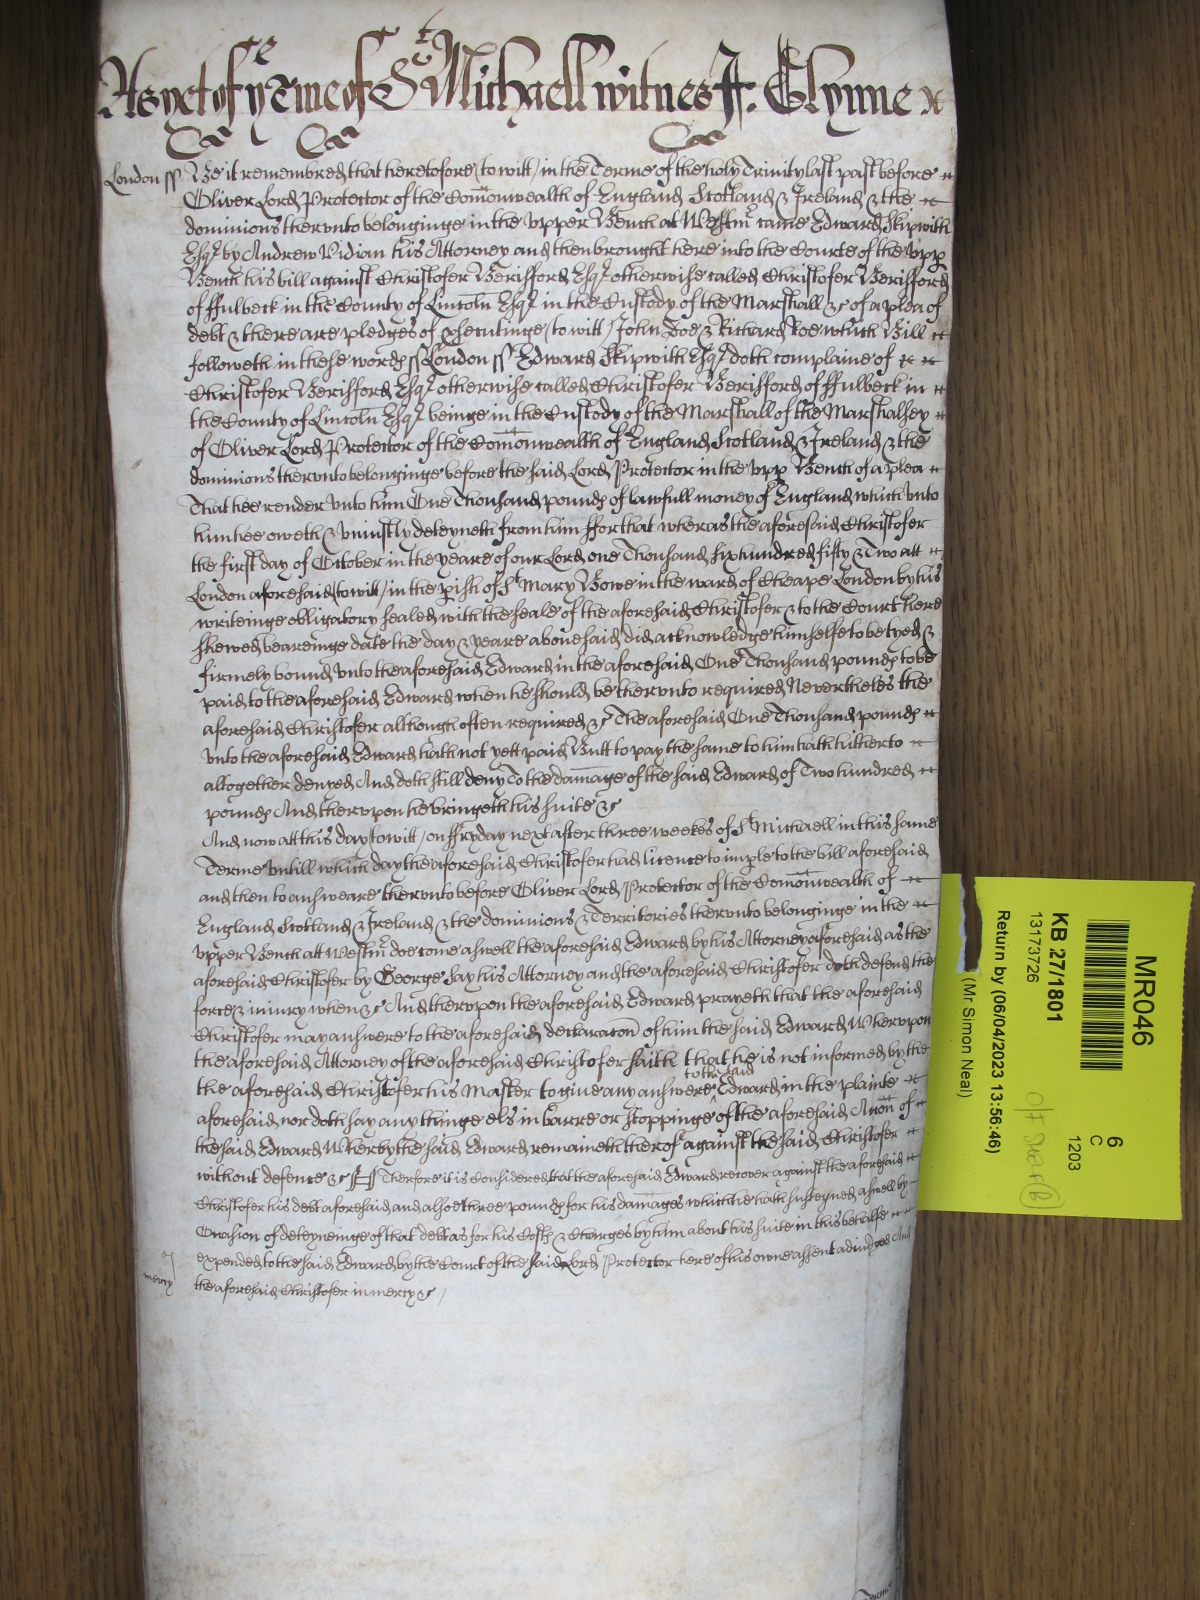 As yet of ye Tme of St Michaell witnes Jo: Glynne
London ss Be it remembred that heretofore (to witt) in the Terme of the holy Trinity last past before
Oliver Lord Protector of the Comonwealth of England Scotland & Ireland & the
dominions thervnto belonginge in the vpper Bench at Westmr came Edward Skipwith
Esqr by Andrew Vidian his Attorney and then brought here into the Courte of the vpp
Bench his bill against Christofer Berisford Esqr otherwise called Christofer Berisford
of ffulbeck in the County of Lincoln Esqr in the Custody of the Marshall &c of a plea of
debt & there are pledges of psecutinge (to witt) John Doe & Richard Roe which Bill
followeth in these words ss London ss Edward Skipwith Esqr doth complaine of
Christofer Berisford Esqr otherwise called Christofer Berisford of ffulbeck in
the County of Lincoln Esqr beinge in the Custody of the Marshall of the Marshalsey
of Oliver Lord Protector of the Comonwealth of England Scotland & Ireland & the
dominions thervnto belonginge before the said Lord Protector in the vpp Bench of a plea
That hee render vnto him One Thousand pounds of lawfull money of England which vnto
him hee oweth & vniustly deteyneth from him ffor that wheras the aforesaid Christofer
the first day of October in the yeare of our Lord one Thousand six hundred fifty & Two att
London aforesaid (to witt) in the pish of St Mary Bowe in the ward of Cheape London by his
writeinge obligatory sealed with the seale of the aforesaid Christofer & to the Court here
shewed beareinge date the day & yeare abouesaid did acknowledge himselfe to be tyed &
firmely bound vnto the aforesaid Edward in the aforesaid One Thousand pounds to be
paid to the aforesaid Edward when he should be thervnto required Neverthelesse the
aforesaid Christofer although often required &c The aforesaid One Thousand pounds
vnto the aforesaid Edward hath not yett paid Butt to pay the same to him hath hitherto
altogether denyed And doth still deny To the damage of the said Edward of Two hundred
pounds And thervpon he bringeth his suite &c
And now att this day (to witt) on ffryday next after three weekes of St Michaell in this same
Terme vntill which day the aforesaid Christofer had licence to imple to the bill aforesaid
and then to answeare thervnto before Oliver Lord Protector of the Comonwealth of
England Scotland & Ireland & the dominions & Territories thervnto belonginge in the
vpper Bench att Westmr doe come aswell the aforesaid Edward by his Attorney aforesaid as the
aforesaid Christofer by George Say his Attorney and the aforesaid Christofer doth defend the
force & iniury when &c And thervpon the aforesaid Edward prayeth that the aforesaid
Christofer may answere to the aforesaid declaracon of him the said Edward Whervpon
the aforesaid Attorney of the aforesaid Christofer saith that he is not informed by the
to the said
the aforesaid Christofer his Master to giue any answere Edward in the plainte
aforesaid nor doth say any thinge els in barre or stoppinge of the aforesaid Accon of
the said Edward Wherby the said Edward remaineth therof against the said Christofer
without defence &c Therfore it is Considered that the aforesaid Edward recover against the aforesaid
Christofer his debt aforesaid and alsoe three pounds for his damages which he hath susteyned aswell by
Occasion of deteyneinge of that debt as for his Costs & Charges by him about his suite in this behalfe
expended to the said Edward by the Court of the said Lord Protector here of his owne assent adiudged And
mercy the aforesaid Christofer in mercy &c
MR046
6
C
1203
KB 27/1801
13173726
Return by (06/04/2023 13:56:46)
(Mr Simon Neal)